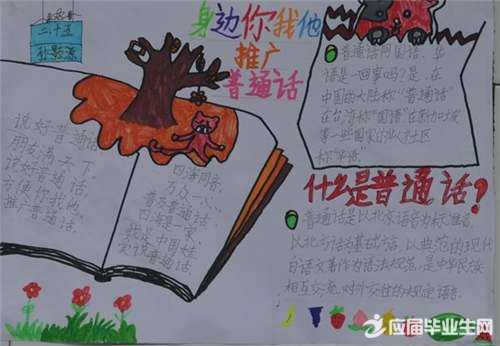 二十五
身边你我他
推广
普通话
普通话同国语、华
语是一回事吗?是,在
中国的大陆称“普通话”
在台湾称“国语”在新加坡
等一些国家的华人社区
称“华语”.
说好普通话,
朋友满天下.
说好普通话,
方便你我他.
推广普通话,
四海同音,
万众一心.
普及普通话,
四海是一家.
我是中国娃,
爱说普通话.
什么是普通话?
普通话是以北京语音为标准音,
以北方话为基础方言,以典范的现代
白话文著作为语法规范,是中华民族
相互交流,对外交往的规定语言.
应届毕业生网